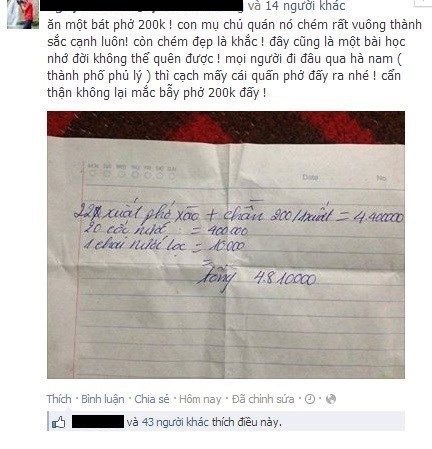 và 14 người khác
ăn một bát phở 200k ! con mụ chủ quán nó chém rất vuông thành
sắc cạnh luôn! còn chém đẹp là khắc ! đây cũng là một bài học
nhớ đời không thể quên được ! mọi người đi đâu qua hà nam (
thành phố phủ lý ) thì cạch mấy cái quấn phở đấy ra nhé ! cẩn
thận không lại mắc bẫy phở 200k đấy !
Date
No.
22 xuất phở xào + chần 200/1 xuất = 4.400000
20 cốc nước = 400.000
1 chai nước lọc = 10.000
Tổng 4.810000
Thích · Bình luận · Chia sẻ · Hôm nay · Đã chỉnh sửa ·
và 43 người khác thích điều này.